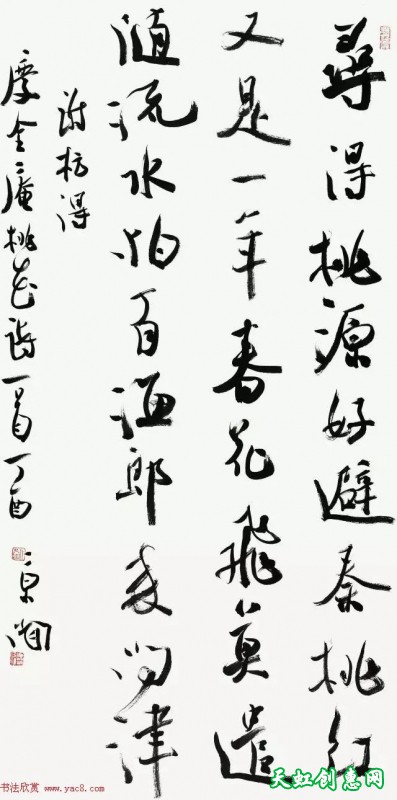 尋得桃源好避秦桃红
又是一年春花飛莫遣
随流水怕有渔郎来问津
谢枋得
慶全庵桃花诗一首丁酉
书法欣赏 www.yac8.com
天虹创意网